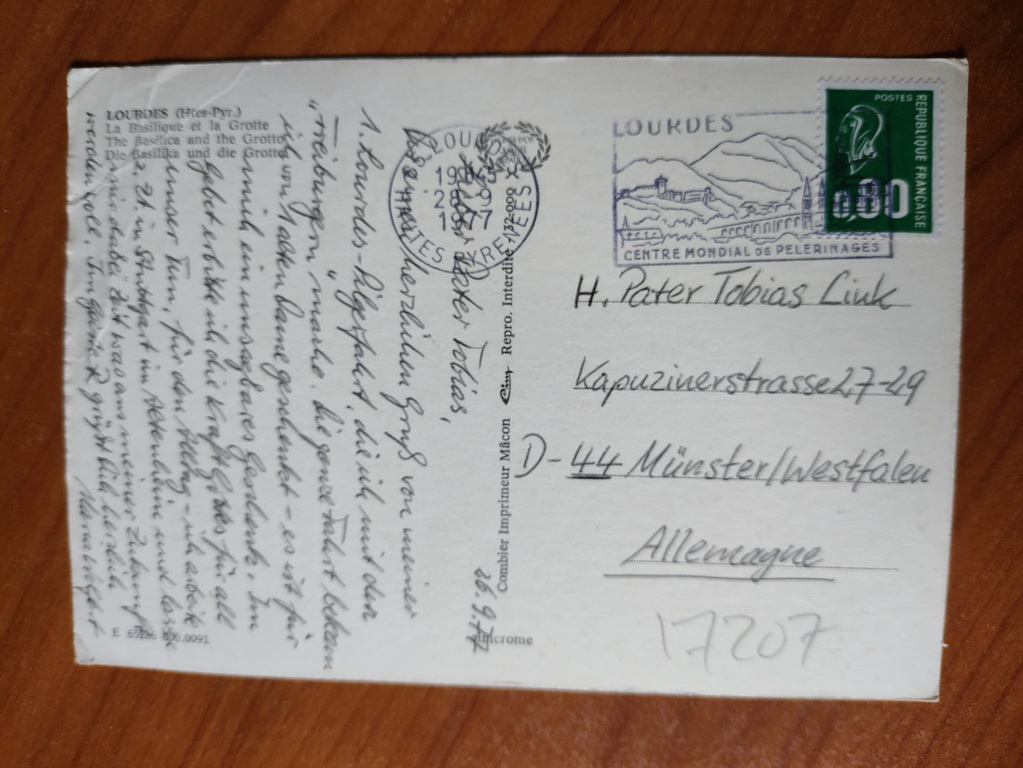 LOURDES (Htes-Pyr.)
La Basilique et la Grotte
The Basilica and the Grotto
Die Basilika und die Grotte
26.9.77
Lieber Pater Tobias,
herzlichen Gruß von meiner
1. Lourdes-Pilgerfahrt, die ich mit den
"Freiburgern" mache. Die ganze Fahrt bekam
ich von 1 alten Dame geschenkt - es ist für
mich ein unsagbares Geschenk. Im
Gebet erbitte ich die Kraft Gottes für all
unser Tun, für den Alltag - ich arbeite
z. Zt. in Stuttgart im Altenheim und lasse
mir dabei Zeit was aus meiner Zukunft
werden soll. Im grüßt Dich herzlich
E 65286 000.0091
Combier Imprimeur Mâcon Cim Repro. Interdite
LOURDES
HTES PYRENEES
LOURDES
CENTRE MONDIAL DE PELERINAGES
POSTES
REPUBLIQUE FRANÇAISE
0.80
H. Pater Tobias Link
Kapuzinerstrasse 27-29
D-44 Münster/Westfalen
Allemagne
17207